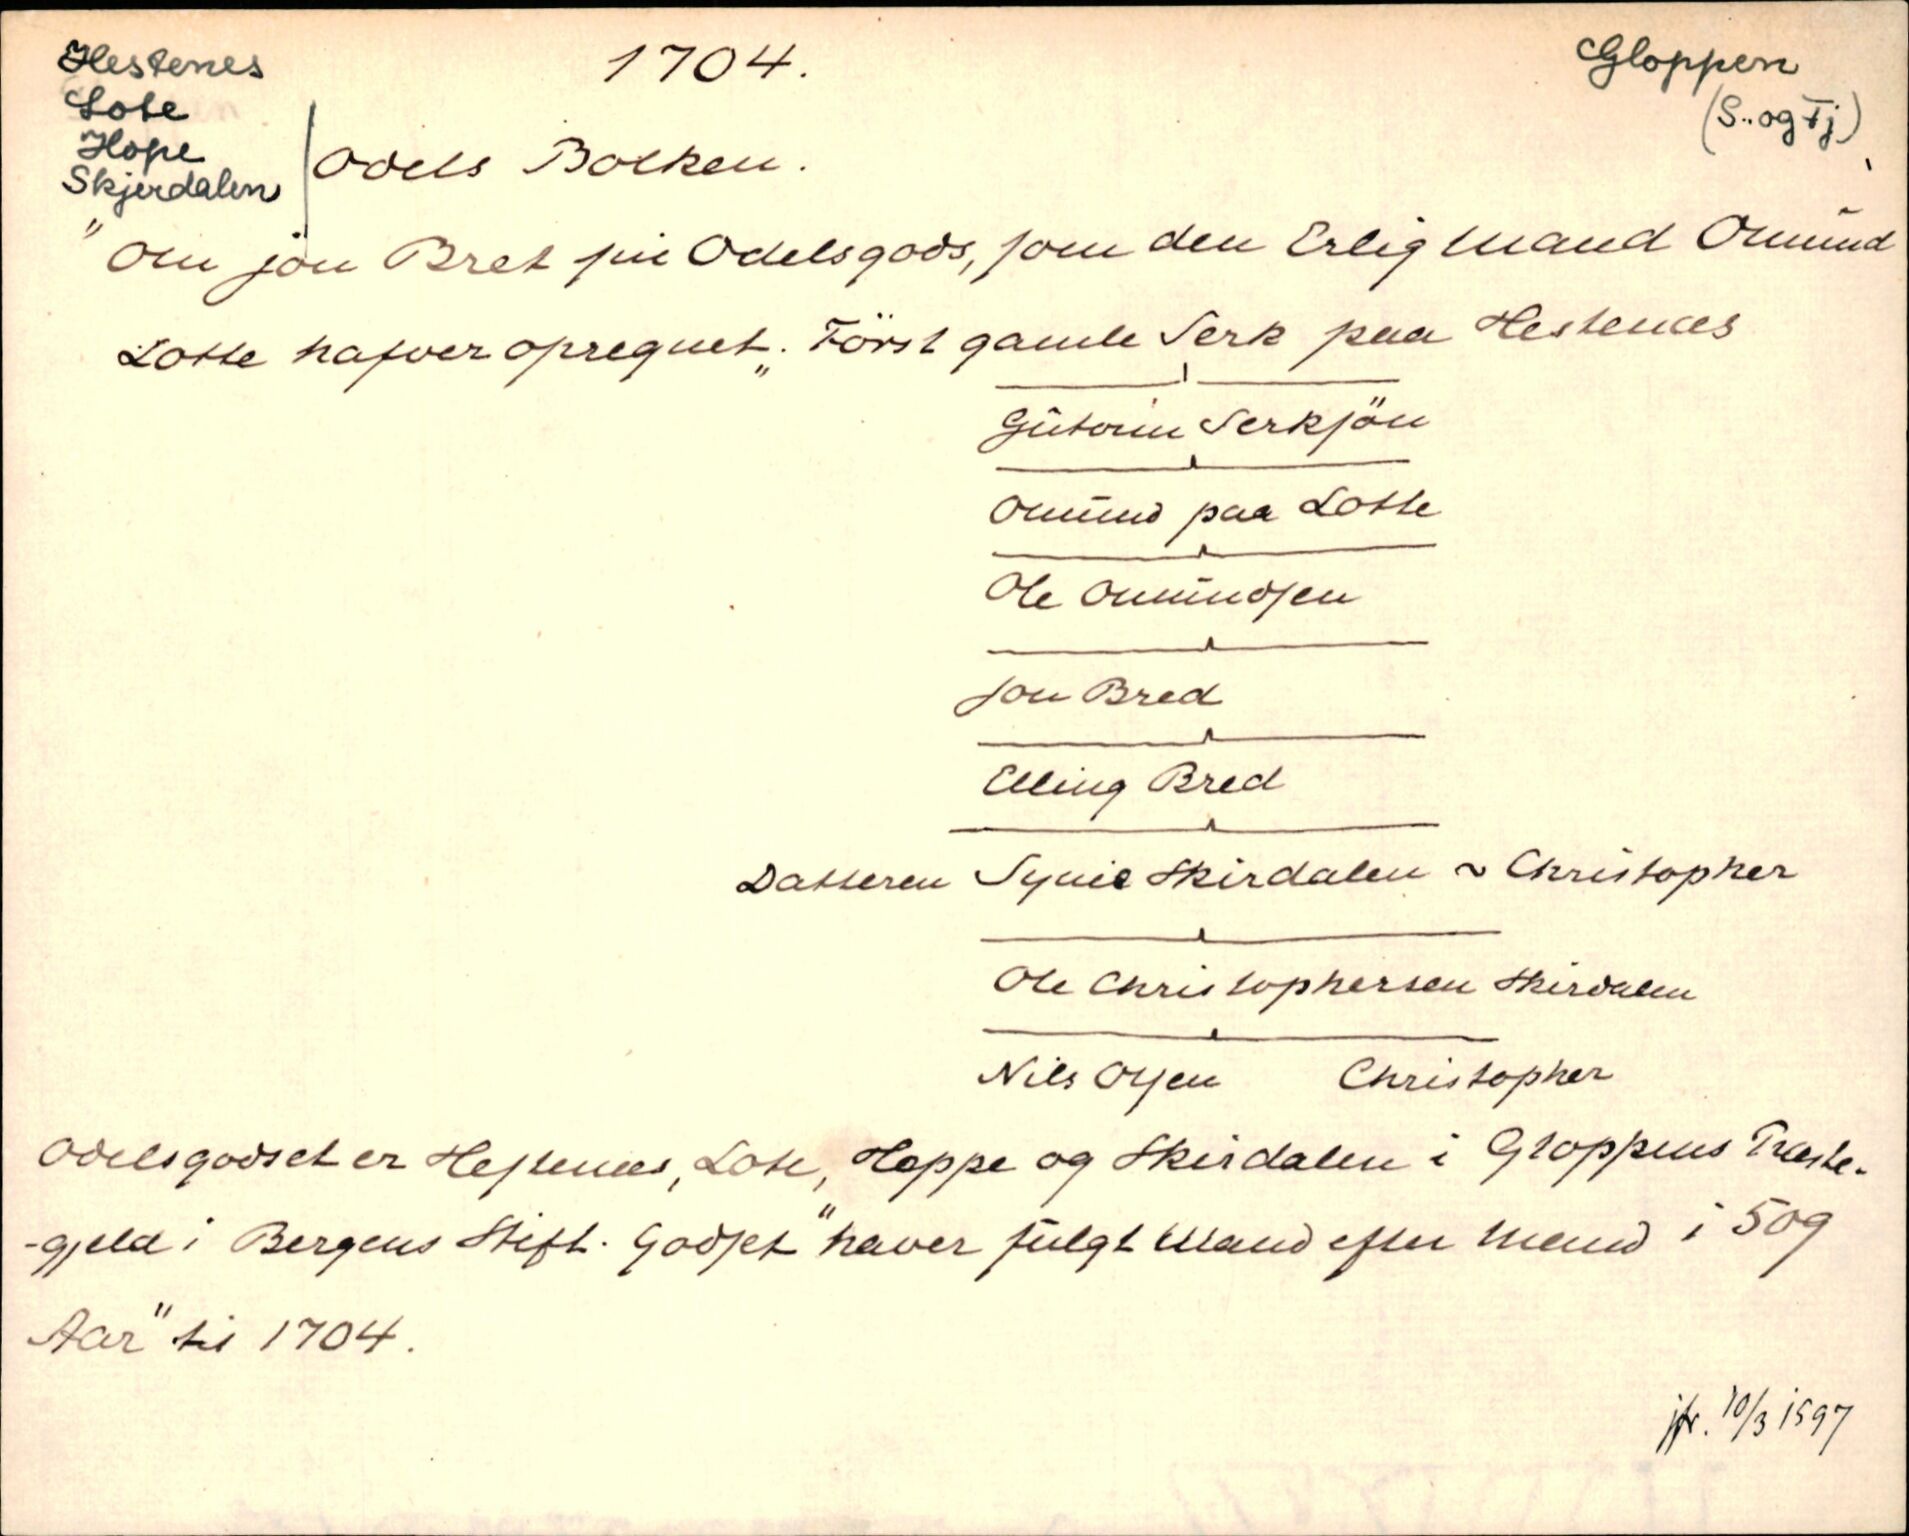 Hestenes
Lote
Hope
Skjerdalen
1704.
Gloppen
(S. og Fj)
Odels Bolken.
"Om jon Bret sin Odelsgods, som den Erlig Mand Omünd
Lotte hafver opregnet„. Först gamle Serk paa Hestenes
Gütorm Serksön
Omünd paa Lotte
Ole Omündsen
Jon Bred
Elling Bred
Datteren Synie Skirdalen ~ Christopher
Ole Christophersen Skirdalen
Nils Olsen Christopher
Odelsgodset er Hestenes, Lote, Hoppe og Skirdalen i Gloppens Præste-
-gjeld i Bergens Stift. Godset "haver fülgt Mand efter Mand i 509
Aar" til 1704.
jfr. 10/3 1597